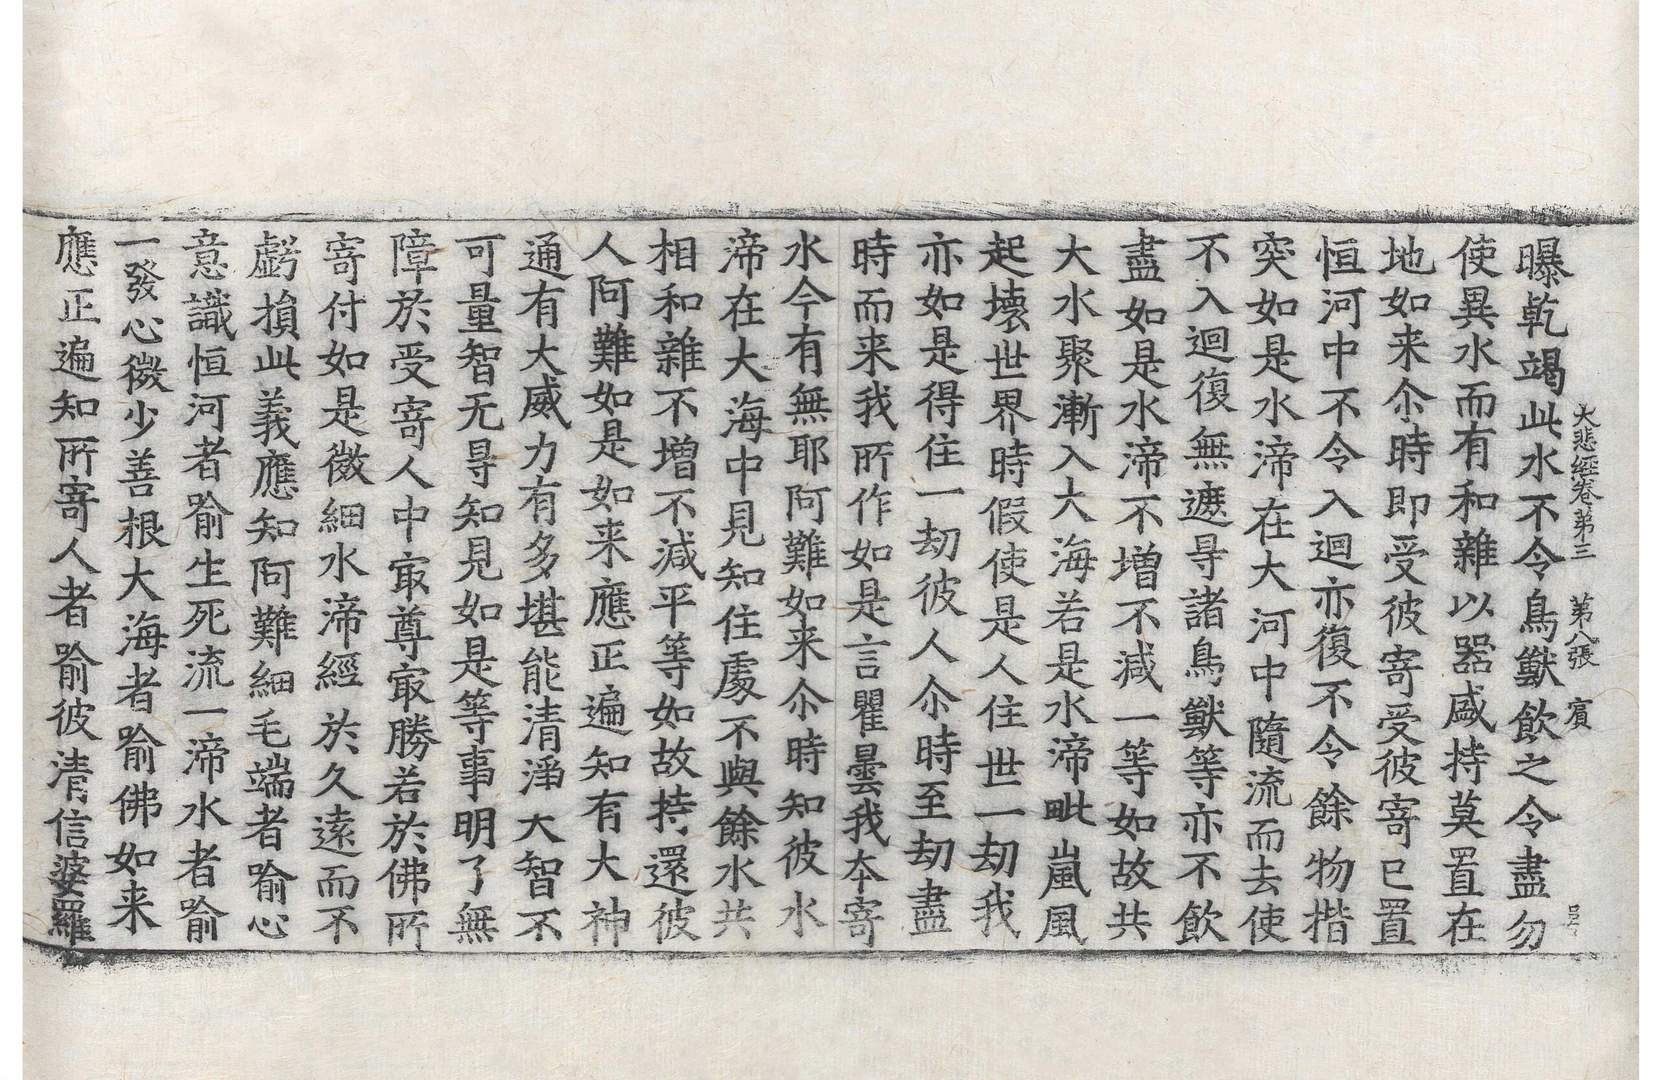 大悲經卷第三 第八張 賓
曝乾竭此水不令鳥獸飮之令盡勿
使異水而有和雜以器盛持莫置在
地如来尒時即受彼寄受彼寄已置
恒河中不令入迴亦復不令餘物揩
突如是水渧在大河中隨流而去使
不入迴復無遮㝵諸鳥獸等亦不飮
盡如是水渧不增不減一等如故共
大水聚漸入大海若是水渧毗嵐風
起壞世界時假使是人住世一劫我
亦如是得住一劫彼人尒時至劫盡
時而来我所作如是言瞿曇我本寄
水今有無耶阿難如来尒時知彼水
渧在大海中見知住處不與餘水共
相和雜不增不減平等如故持還彼
人阿難如是如来應正遍知有大神
通有大威力有多堪能清淨大智不
可量智无㝵知見如是等事明了無
障於受寄人中㝡尊㝡勝若於佛所
寄付如是微細水渧經於久遠而不
虧損此義應知阿難細毛端者喻心
意識恒河者喻生死流一渧水者喻
一發心微少善根大海者喻佛如来
應正遍知所寄人者喻彼清信婆羅